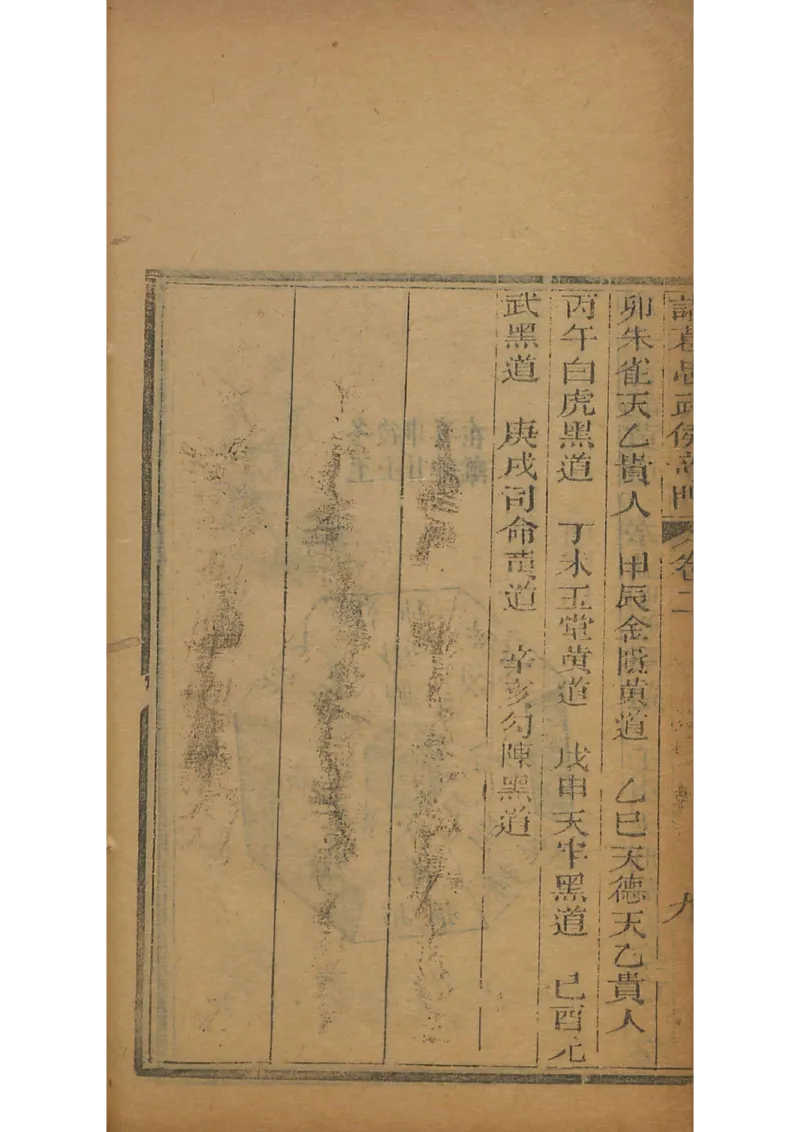 諸葛忠武侯奇門 卷二 九
卯朱雀天乙貴人 甲辰金匱黄道 乙巳天德天乙貴人
丙午白虎黑道 丁未玉堂黄道 戊申天牢黑道 己酉元
武黑道 庚戌司命黄道 辛亥勾陳黑道